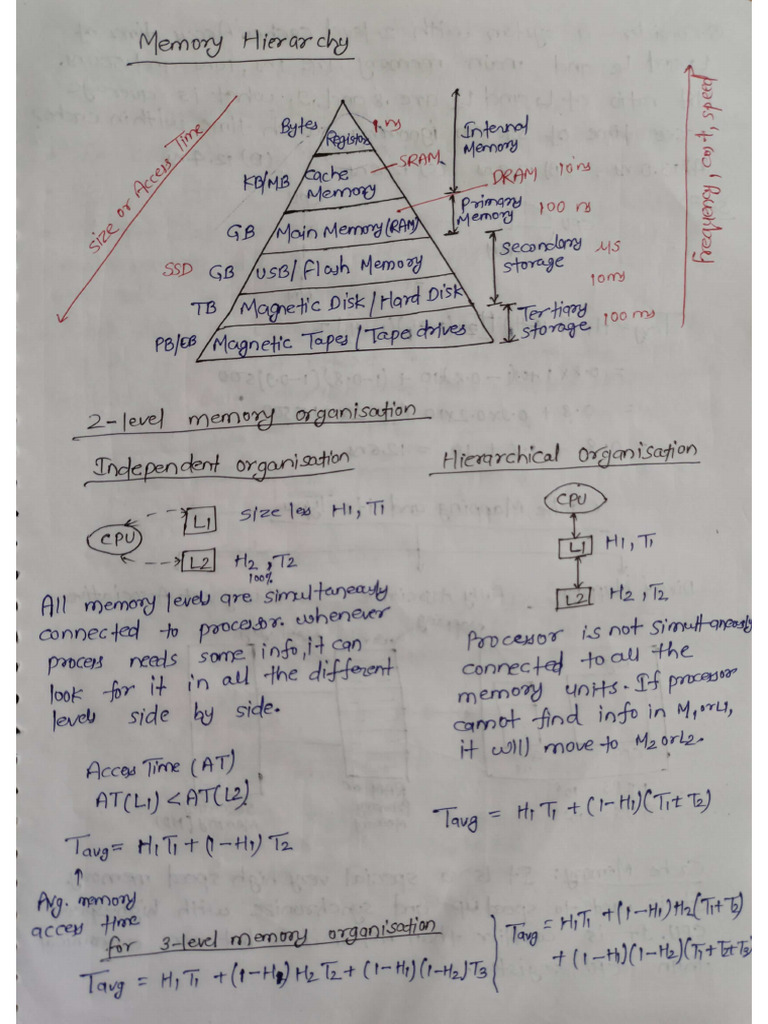 Memory Hierarchy
Size or Access Time
frequency, cost, speed
Bytes Registor 1 ns
Internal Memory
KB/MB Cache Memory SRAM
DRAM 10 ns
Primary Memory 100 ns
GB Main Memory (RAM)
SSD GB USB/Flash Memory
Secondary storage μs
10 ms
TB Magnetic Disk/Hard Disk
PB/EB Magnetic Tapes/Tape drives
Tertiary storage 100 ms
2-level memory organisation
Independent organisation
CPU
L1 size less H1, T1
L2 H2, T2
100%
All memory levels are simultaneously
connected to processor. whenever
process needs some info, it can
look for it in all the different
levels side by side.
Access Time (AT)
AT(L1) < AT(L2)
Tavg = H1T1 + (1-H1) T2
↑
Avg. memory
access time
Hierarchical Organisation
CPU
L1 H1, T1
L2 H2, T2
Processor is not simultaneously
connected to all the
memory units. If processor
cannot find info in M1 or L1,
it will move to M2 or L2.
Tavg = H1T1 + (1-H1)(T1+T2)
for 3-level memory organisation
Tavg = H1T1 + (1-H1) H2T2 + (1-H1)(1-H2)T3
Tavg = H1T1 + (1-H1)H2(T1+T2)
+ (1-H1)(1-H2)(T1+T2+T3)